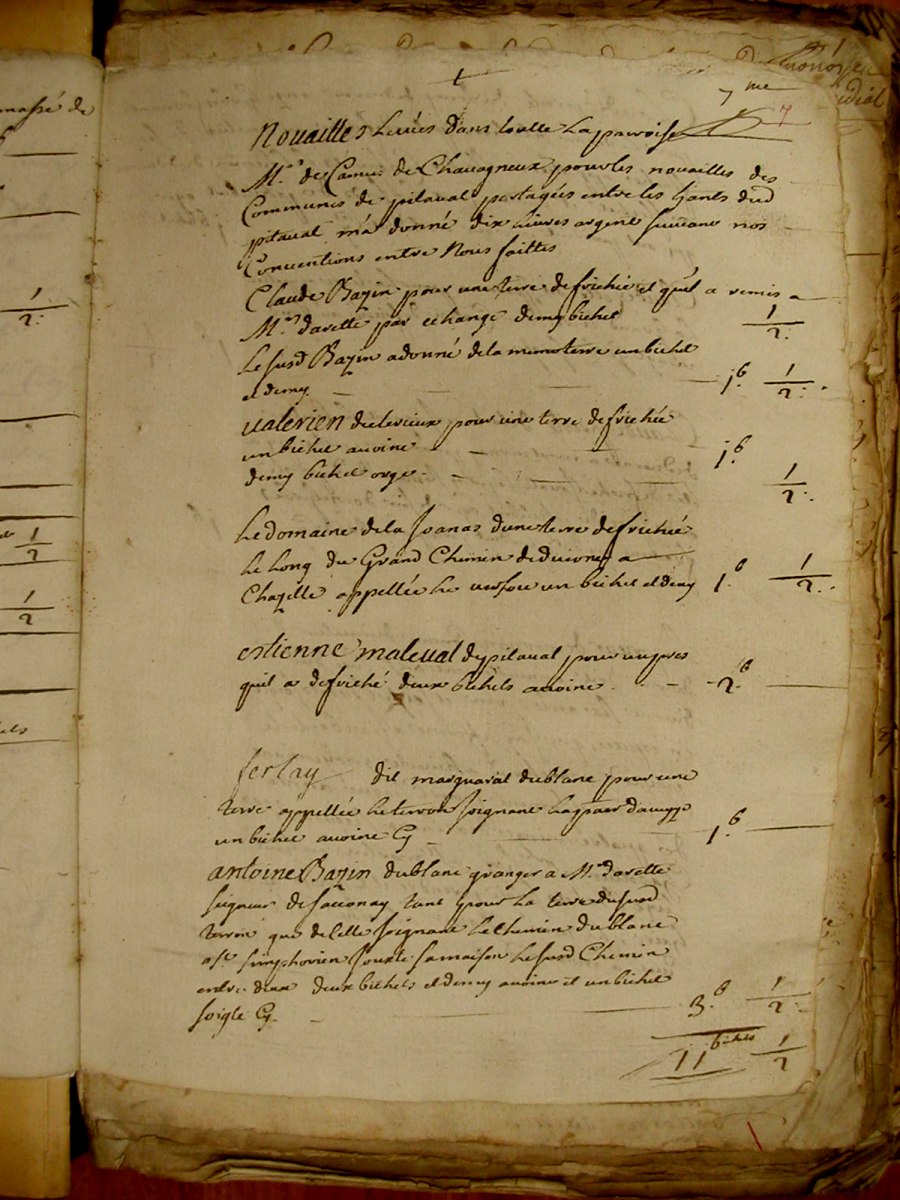 7me
7
Nouailles Levées dans toutte La parroisse
Mr. de Camus de Chavagneux pour les nouailles des
Communes de pitaval partagées entre les hants dud
pitaval m'a donné dix Livres argent suivant nos
Conventions entre Nous faittes
Claude Bazin pour une terre defrichée et qu'il a remis a
Mr. davette par echange demy bichet 1/2.
Le susd Bazin a donné de la mesme terre un bichet
et demy 1.b 1/2.
valerien duclerieux pour une terre defrichée
un bichet avoine 1.b
demy bichet orge 1/2.
Le domaine de la Joanas d'une terre defrichée
Le Long du Grand Chemin de a
Chazelle appellée Le un bichet et demy 1.b 1/2.
estienne maleval de pitaval pour un pres
quil a defriché deux bichets avoine 2.b
ferlay dit marquaral du blanc pour une
terre appellée Le terron Joignant La
un bichet avoine Cy 1.b
antoine Bazin du blanc granger a Mr. davette
signeur de sauonay tant pour La terre du susd
terroir que de Celle Joignant Le Chemin du blanc
a st. simphorien Jouxte sa maison Le susd Chemin
entre deux deux bichets et demy avoine et un bichet
soigle Cy. 3.b 1/2.
11 bichets 1/2
massé de
1/2.
1/2
1/2